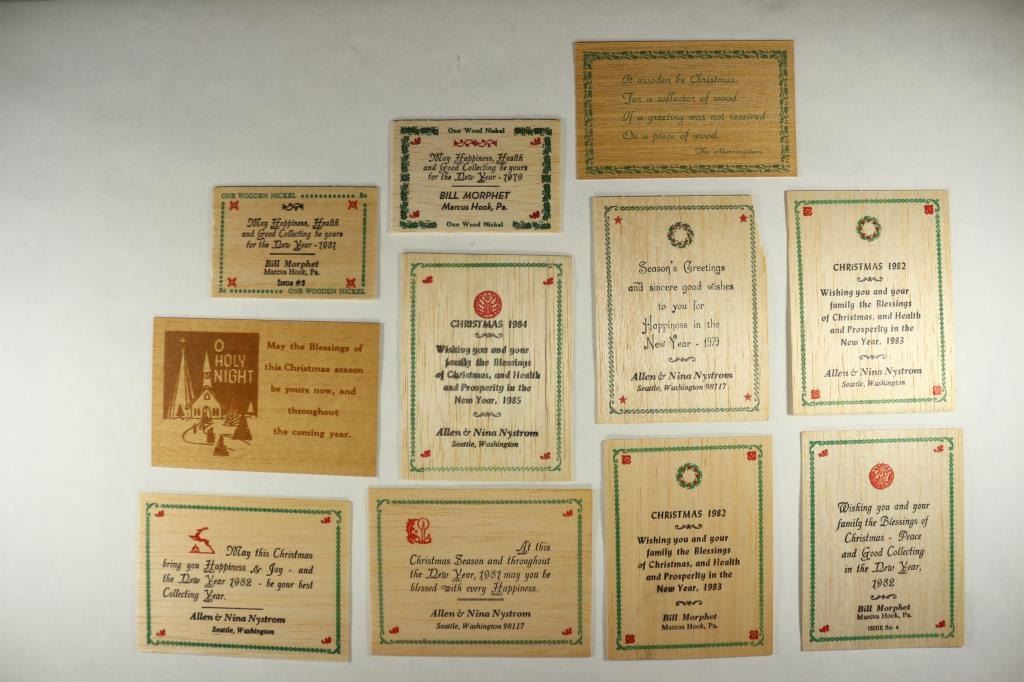 It wooden be Christmas,
For a collector of wood
If a greeting was not received
On a piece of wood.
The Morningstars
One Wood Nickel
May Happiness, Health
and Good Collecting be yours
for the New Year - 1979
BILL MORPHET
Marcus Hook, Pa.
One Wood Nickel
ONE WOODEN NICKEL 5c
May Happiness, Health
and Good Collecting be yours
for the New Year - 1981
Bill Morphet
Marcus Hook, Pa.
Issue #3
5c ONE WOODEN NICKEL
Season's Greetings
and sincere good wishes
to you for
Happiness in the
New Year - 1979
Allen & Nina Nystrom
Seattle, Washington 98117
CHRISTMAS 1982
Wishing you and your
family the Blessings
of Christmas, and Health
and Prosperity in the
New Year, 1983
Allen & Nina Nystrom
Seattle, Washington
O
HOLY
NIGHT
May the Blessings of
this Christmas season
be yours now, and
throughout
the coming year.
CHRISTMAS 1984
Wishing you and your
family the Blessings
of Christmas, and Health
and Prosperity in the
New Year, 1985
Allen & Nina Nystrom
Seattle, Washington
May this Christmas
bring you Happiness & Joy - and
the New Year 1982 - be your best
Collecting Year.
Allen & Nina Nystrom
Seattle, Washington
At this
Christmas Season and throughout
the New Year, 1981 may you be
blessed with every Happiness.
Allen & Nina Nystrom
Seattle, Washington 98117
CHRISTMAS 1982
Wishing you and your
family the Blessings
of Christmas, and Health
and Prosperity in the
New Year, 1983
Bill Morphet
Marcus Hook, Pa.
Wishing you and your
family the Blessings of
Christmas - Peace
and Good Collecting
in the New Year,
1982
Bill Morphet
Marcus Hook, Pa.
ISSUE No. 4